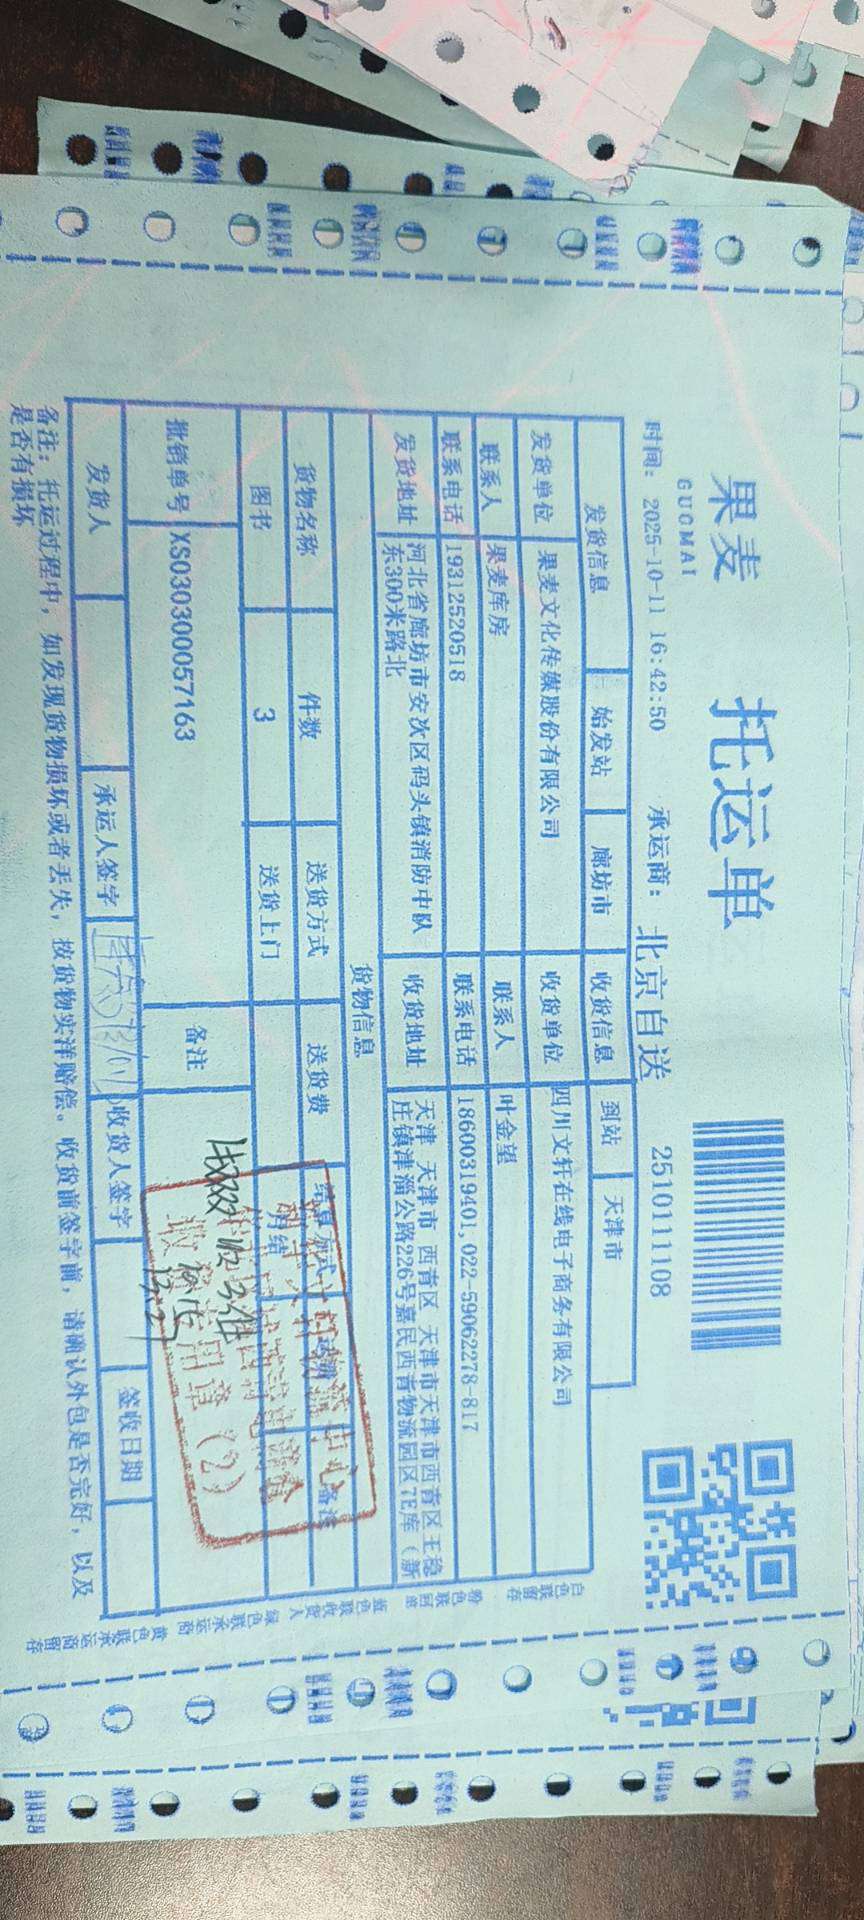 果麦
GUOMAI
托运单
2510111108
时间: 2025-10-11 16:42:50
承运商: 北京自送
发货信息 始发站 廊坊市 收货信息 到站 天津市
发货单位 果麦文化传媒股份有限公司 收货单位 四川文轩在线电子商务有限公司
联系人 果麦库房 联系人 叶金望
联系电话 19312520518 联系电话 18600319401,022-59062278-817
发货地址 河北省廊坊市安次区码头镇消防中队东300米路北 收货地址 天津 天津市 西青区 天津市天津市西青区王稳庄镇津淄公路226号嘉民西青物流园区7E库（新
货物信息
货物名称 件数 送货方式 送货费 结算方式 备注
图书 3 送货上门 月结
批销单号 XS030300057163 备注
发货人 承运人签字 收货人签字 签收日期
备注: 托运过程中, 如发现货物损坏或者丢失, 按货物实洋赔偿。收货前签字前, 请确认外包是否完好, 以及
是否有损坏
白色联留存 粉色联回单 蓝色联收货人 绿色联承运商 黄色联承运商留存
收货专用章 (2)